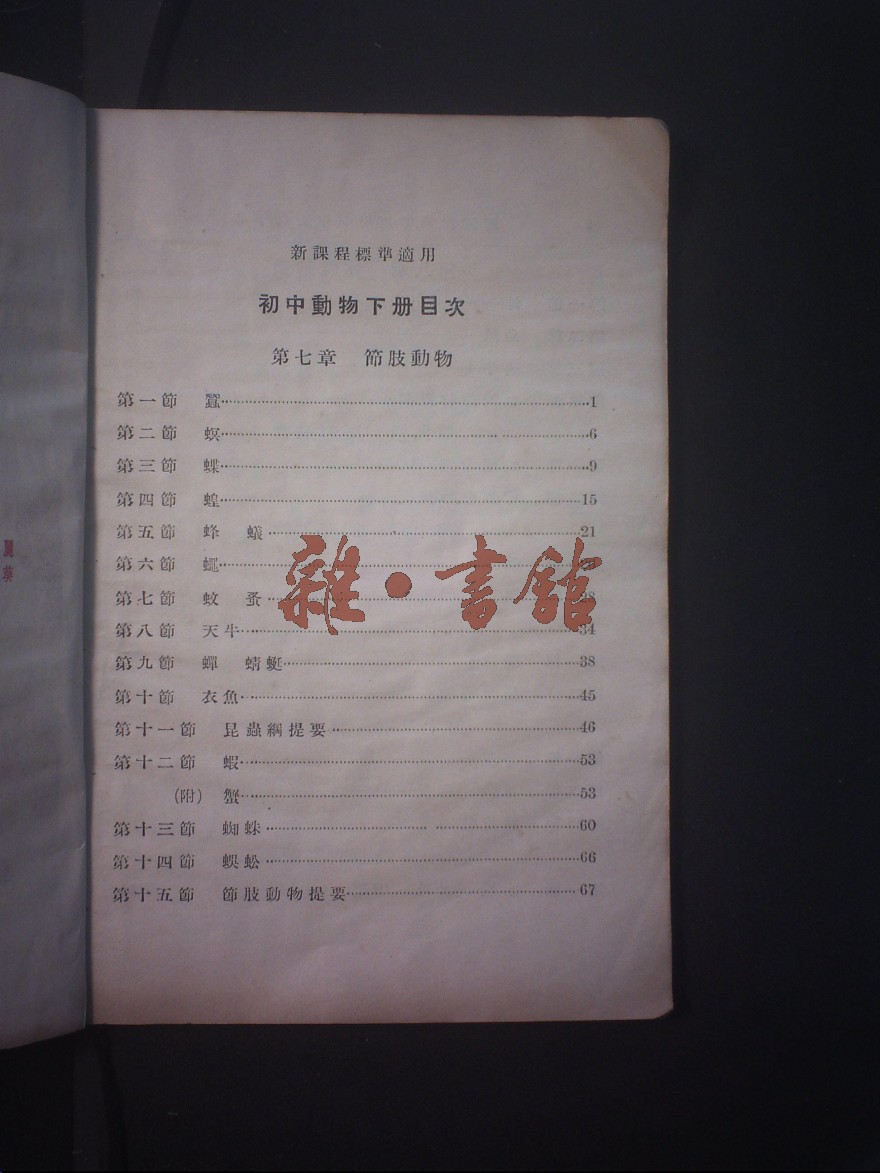 新課程標準適用
初中動物下册目次
第七章 節肢動物
第一節 蠶 1
第二節 螟 6
第三節 蝶 9
第四節 蝗 15
第五節 蜂 蟻 21
第六節 蠅
第七節 蚊 蚤 8
第八節 天牛 34
第九節 蟬 蜻蜓 38
第十節 衣魚 45
第十一節 昆蟲綱提要 46
第十二節 蝦 53
(附) 蟹 53
第十三節 蜘蛛 60
第十四節 蜈蚣 66
第十五節 節肢動物提要 67
雜·書館